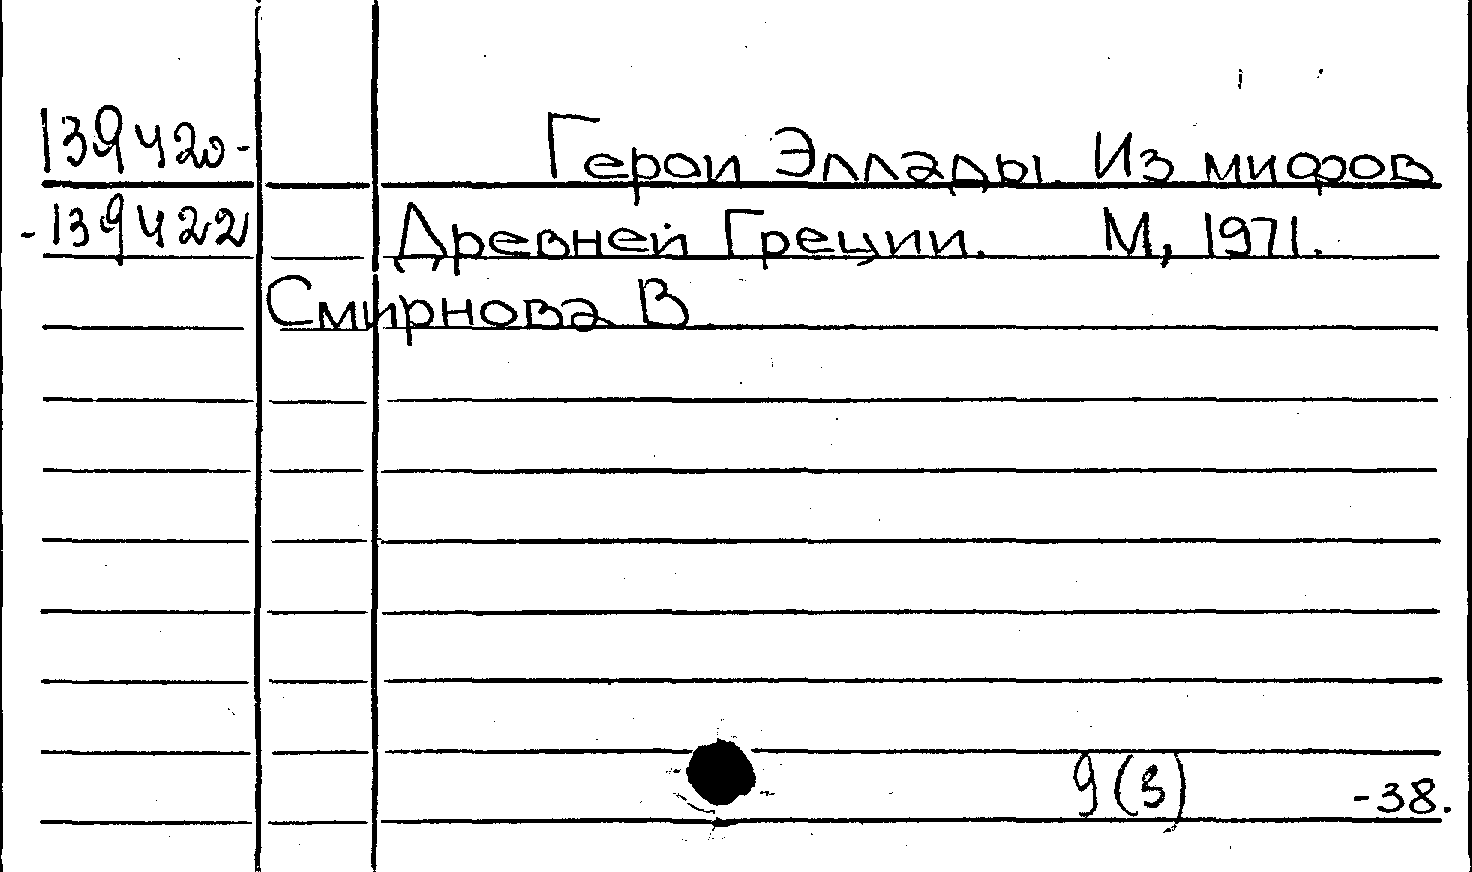 139420- Герои Эллады. Из мифов
-139422 Древней Греции. М, 1971.
Смирнова В
9(3) -38.